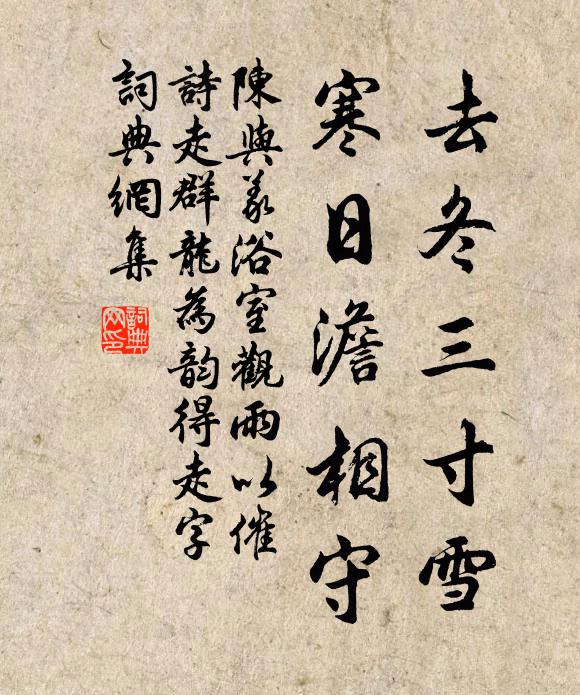 去冬三寸雪
寒日澹相守
陳與義浴室觀雨以催
詩走群龍為韵得走字
詞典網集
詞典
网印